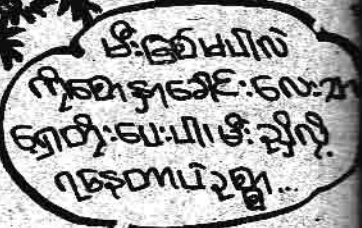 မီးခြစ်မပါလို့
ကိုမောနှာခေါင်းလေးဘာ
ရှေ့တိုးပေးပါ။ မီးညှိလို့
ရနေတာပဲဥစ္စာ...